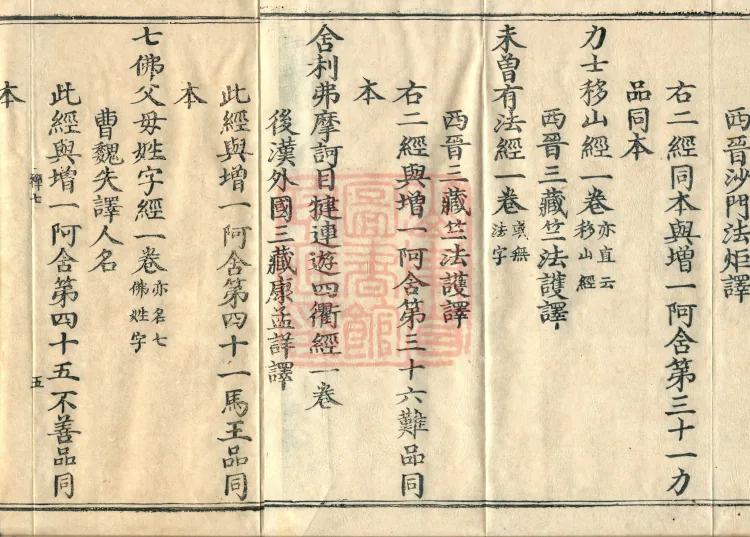 西晉沙門法炬譯
右二經同本與增一阿含第三十一力
品同本
力士移山經一卷亦直云移山經
西晉三藏竺法護譯
未曾有法經一卷或無法字
西晉三藏竺法護譯
右二經與增一阿含第三十六難品同
本
舍利弗摩訶目揵連遊四衢經一卷
後漢外國三藏康孟詳譯
此經與增一阿含第四十一馬王品同
本
七佛父母姓字經一卷亦名七佛姓字
曹魏失譯人名
此經與增一阿含第四十五不善品同
禪七 五
本